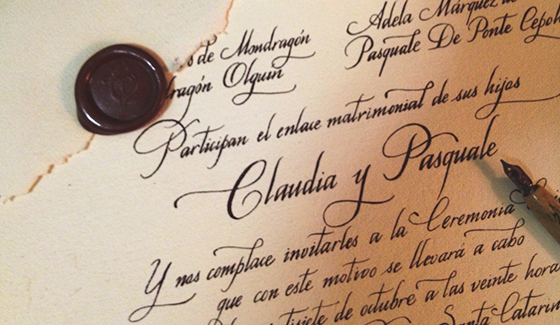 s de Mondragón
ragón Olguín
Adela Márquez d
Pasquale De Ponte Cepol
Participan el enlace matrimonial de sus hijos
Claudia y Pasquale
Y nos complace invitarles a la Ceremonia
que con este motivo se llevará a cabo
de octubre a las veinte hora
Santa Catarin